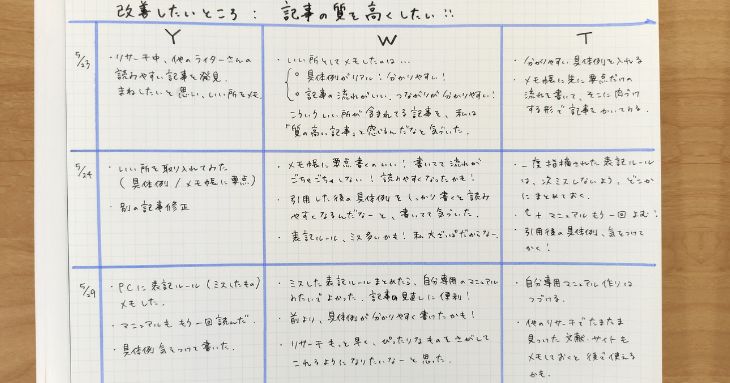 改善したいところ : 記事の質を高くしたい!!
Y
W
T
5/23
・リサーチ中、他のライターさんの
読みやすい記事を発見。
まねしたいと思い、いい所をメモ。
・いい所としてメモしたのは…
○ 具体例がリアル!分かりやすい!
○ 記事の流れがいい。つながりが分かりやすい!
こういういい所が含まれてる記事を、私は
「質の高い記事」と感じるんだなと気づいた。
・分かりやすい具体例を入れる
・メモ帳に先に要点だけの
流れを書いて、そこに肉づけ
する形で記事をかいてみる。
5/24
・いい所を取り入れてみた
(具体例/メモ帳に要点)
・別の記事修正
・メモ帳に要点書くのいい!書いてて流れが
ごちゃごちゃしない!読みやすくなったかも!
・引用した後の具体例をしっかり書くと読み
やすくなるんだなーと、書いてて気づいた。
・表記ルール、ミス多いかも!私大ざっぱだからなー。
・一度指摘された表記ルール
は、次ミスしないよう、どこか
にまとめておく。
・マニュアルもう一回よむ!
・引用後の具体例、気をつけて
かく!
5/29
・PCに表記ルール(ミスしたもの)
メモした。
・マニュアルももう一回読んだ。
・具体例気をつけて書いた。
・ミスした表記ルールまとめたら、自分専用のマニュアル
みたいでよかった。記事の見直しに便利!
・前より、具体例が分かりやすく書けたかも!
・リサーチもっと早く、ぴったりなものをさがして
これるようになりたいなーと思った。
・自分専用マニュアル作りは
つづける。
・他のリサーチでたまたま
見つけた文献・サイトも
メモしておくと後で使える
かも。